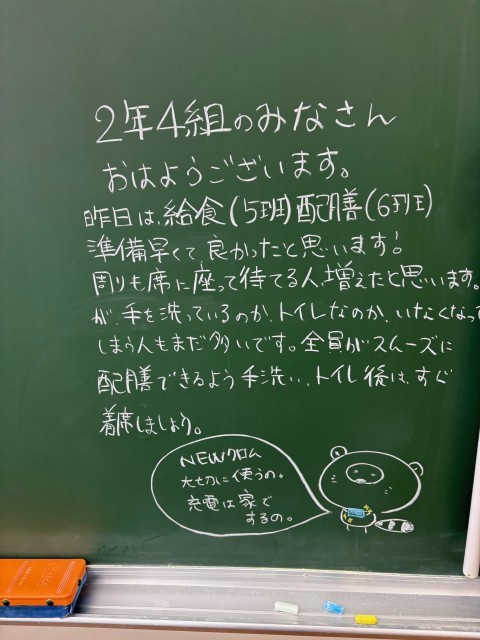 2年4組のみなさん
おはようございます。
昨日は、給食(5班)配膳(6班)
準備早くて良かったと思います!
周りも席に座って待てる人増えたと思います。
が、手を洗っているのか、トイレなのか、いなくなって
しまう人もまだ多いです。全員がスムーズに
配膳できるよう手洗い、トイレ後は、すぐ
着席しましょう。
NEWクロム
大切に使うの。
充電は家で
するの。